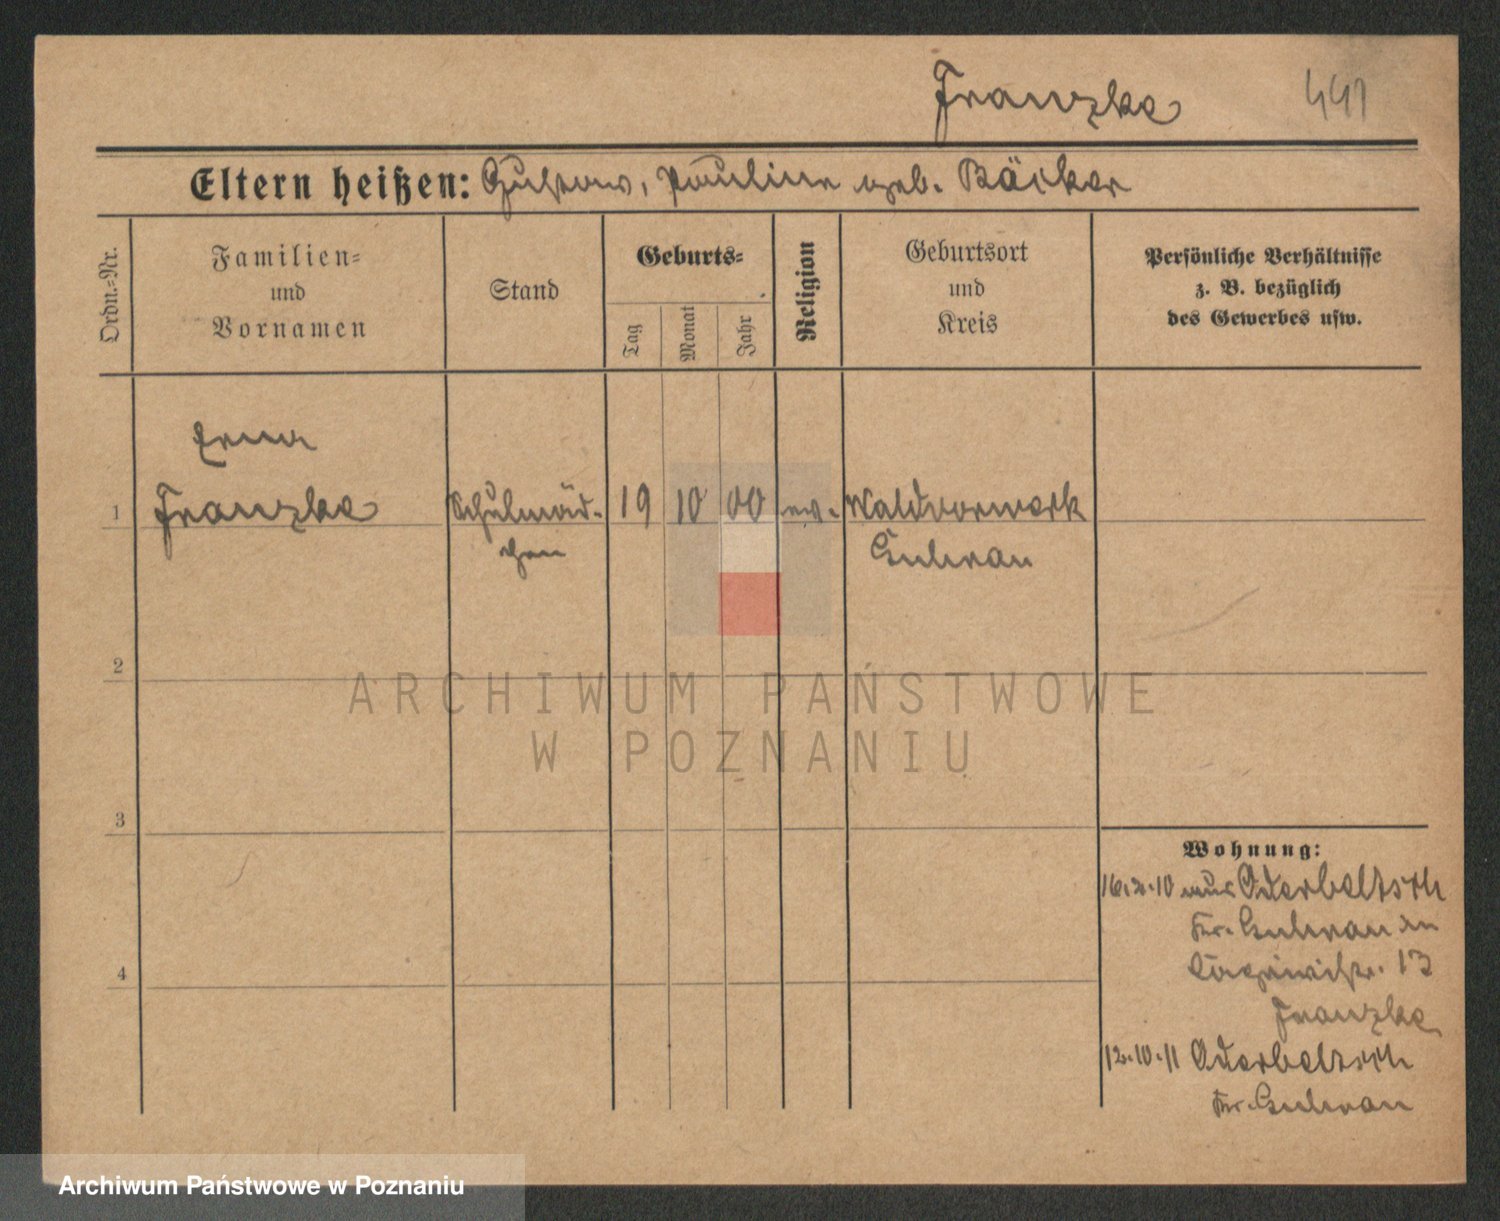 Franzke 441
Eltern heißen: Gustav, Pauline geb. Bäcker
Ordn.-Nr.
Familien-
und
Vornamen
Stand
Geburts-
Tag
Monat
Jahr
Religion
Geburtsort
und
Kreis
Persönliche Verhältnisse
z. B. bezüglich
des Gewerbes usw.
Erna
1 Franzke Schulmäd- 19 10 00 ev. Waldvorwerk
chen Guhrau
2
ARCHIWUM PAŃSTWOWE
W POZNANIU
3
Wohnung:
16.2.10 aus Oderbeltsch
Kr. Guhrau
4
13
Franzke
12.10.11 Oderbeltsch
Kr. Guhrau
Archiwum Państwowe w Poznaniu